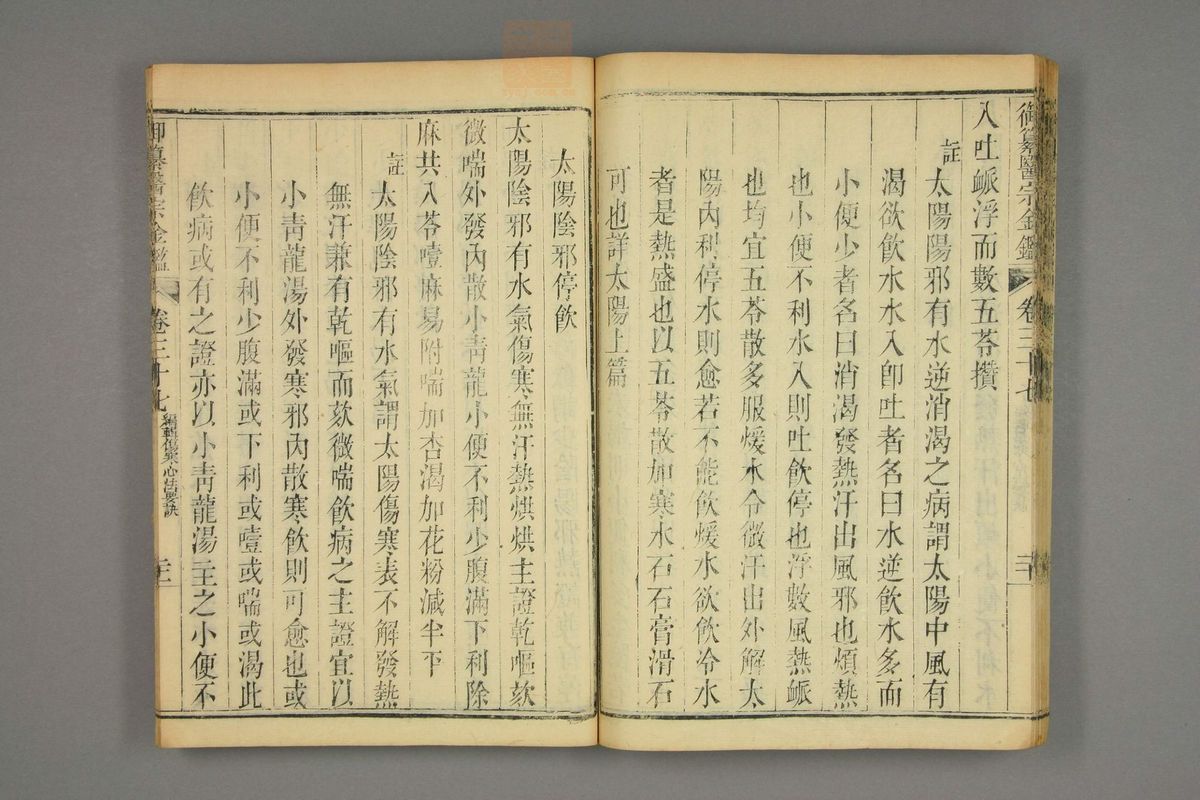 御纂醫宗金鑑 卷三十七
入吐䘑浮而數五苓攢
註
太陽陽邪有水逆消渴之病謂太陽中風有
渴欲飲水水入卽吐者名曰水逆飲水多而
小便少者名曰消渴發熱汗出風邪也煩熱
也小便不利水入則吐飲停也浮數風熱䘑
也均宜五苓散多服煖水令微汗出外解太
陽內利停水則愈若不能飲煖水欲飲冷水
者是熱盛也以五苓散加寒水石石膏滑石
可也詳太陽上篇
太陽陰邪停飲
太陽陰邪有水氣傷寒無汗熱烘烘主證乾嘔欬
微喘外發內散小靑龍小便不利少腹滿下利除
麻共入苓噎麻易附喘加杏渴加花粉減半下
註
太陽陰邪有水氣謂太陽傷寒表不解發熱
無汗兼有乾嘔而欬微喘飲病之主證宜以
小靑龍湯外發寒邪內散寒飲則可愈也或
小便不利少腹滿或下利或噎或喘或渴此
飲病或有之證亦以小靑龍湯主之小便不
御纂醫宗金鑑 卷三十七 編輯傷寒心法要訣